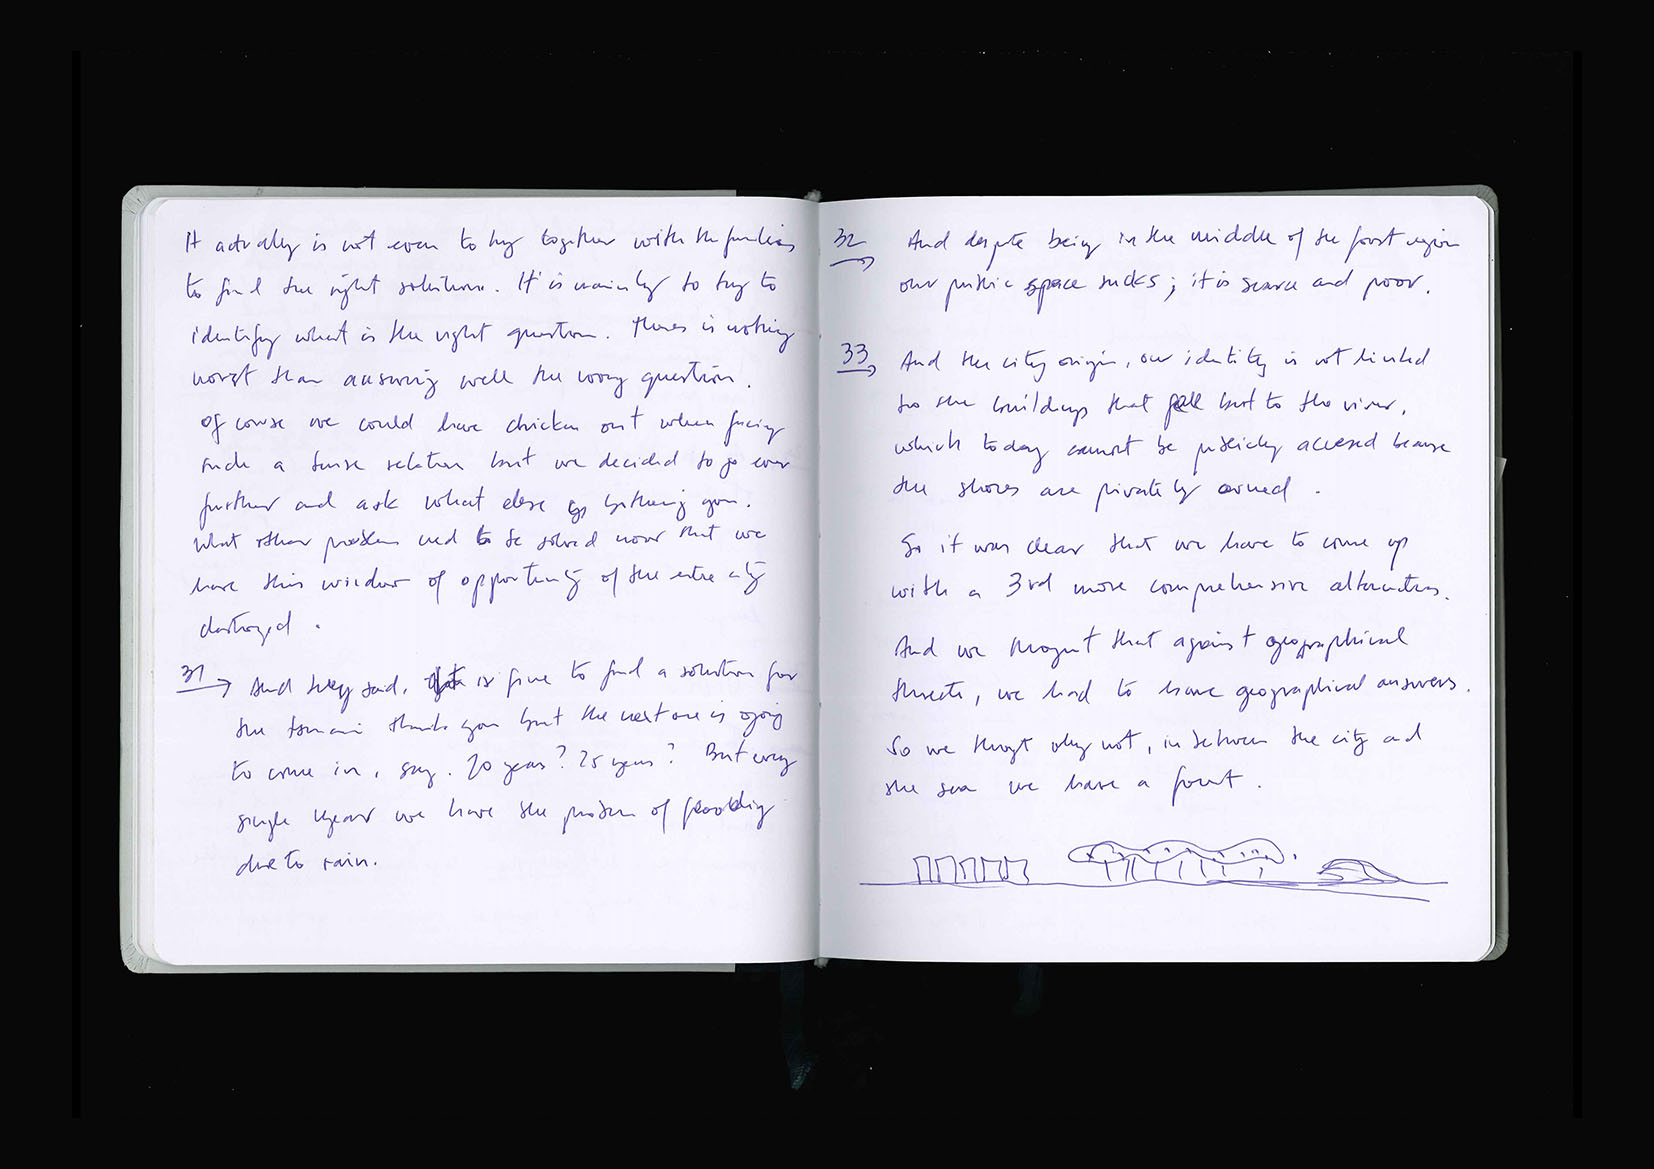 It actually is not even to try together with the families
to find the right solutions. It is mainly to try to
identify what is the right question. There is nothing
worst than answering well the wrong question.
Of course we could have chicken out when facing
such a tense relation but we decided to go even
further and ask what else is bothering you.
What other problems need to be solved now that we
have this window of opportunity of the entire city
destroyed.
31 → And they said, is fine to find a solution for
the tsunami thank you but the next one is going
to come in, say. 20 years? 25 years? But every
single year we have the problem of flooding
due to rain.
32 → And despite being in the middle of the forest region
our public space sucks; it is scarce and poor.
33 → And the city origin, our identity is not linked
to the buildings that fell but to the river,
which today cannot be publicly accessed because
the shores are privately owned.
So it was clear that we have to come up
with a 3rd more comprehensive alternative.
And we thought that against geographical
threats, we had to have geographical answers.
So we thought why not, in between the city and
the sea we have a forest.